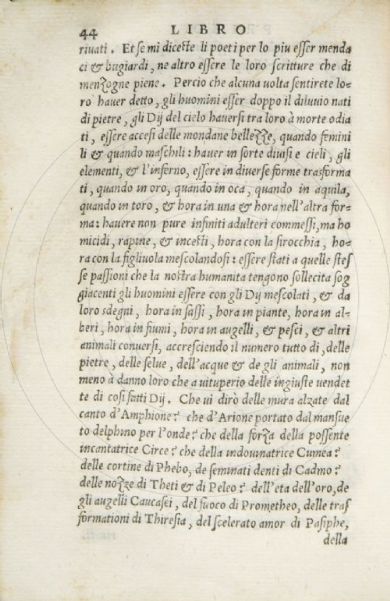 44 LIBRO
riuati. Et se mi diceste li poeti per lo piu esser menda
ci & bugiardi, ne altro essere le loro scritture che di
menzogne piene. Percio che alcuna uolta sentirete lo-
ro hauer detto, gli huomini esser doppo il diluuio nati
di pietre, gli Dij del cielo hauersi tra loro à morte odia
ti, essere accesi delle mondane bellezze, quando femini
li & quando maschili: hauer in sorte diuisi e cieli, gli
elementi, & l'inferno, essere in diuerse forme trasforma
ti, quando in oro, quando in oca, quando in aquila,
quando in toro, & hora in una & hora nell'altra for-
ma: hauere non pure infiniti adulteri commessi, ma ho
micidi, rapine, & incesti, hora con la sirocchia, ho-
ra con la figliuola mescolandosi: essere stati a quelle stes
se passioni che la nostra humanita tengono sollecita sog
giacenti gli huomini essere con gli Dij mescolati, & da
loro sdegni, hora in sassi, hora in piante, hora in al-
beri, hora in fiumi, hora in augelli, & pesci, & altri
animali conuersi, accrescendo il numero tutto di, delle
pietre, delle selue, dell'acque & de gli animali, non
meno à danno loro che a uituperio delle ingiuste uendet
te di cosi fatti Dij. Che ui dirò delle mura alzate dal
canto d'Amphione? che d'Arione portato dal mansue
to delphino per l'onde? che della forza della possente
incantatrice Circe? che della indouinatrice Cumea?
delle cortine di Phebo, de seminati denti di Cadmo?
delle nozze di Theti & di Peleo? dell'eta dell'oro, de
gli augelli Caucasei, del fuoco di Prometheo, delle tras
formationi di Thiresia, del scelerato amor di Pasiphe,
della